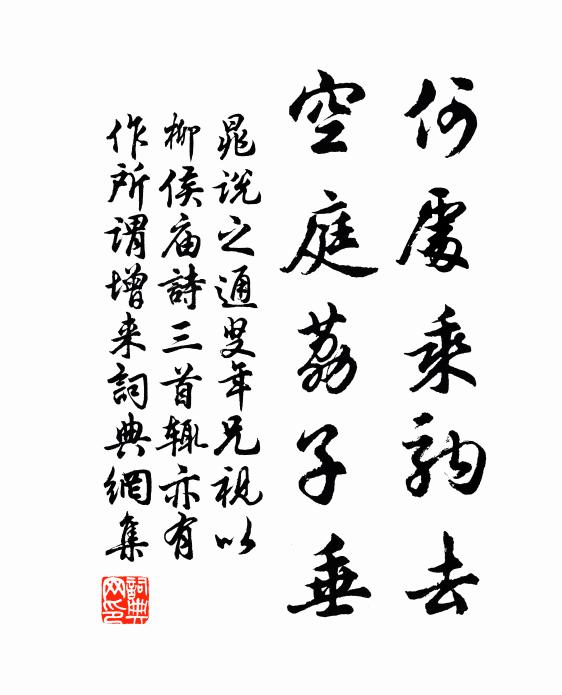 何處乘駒去
空庭荔子垂
晁說之通叟年兄視以
柳侯庙詩三首輙亦有
作所謂增来詞典網集
詞典
网印